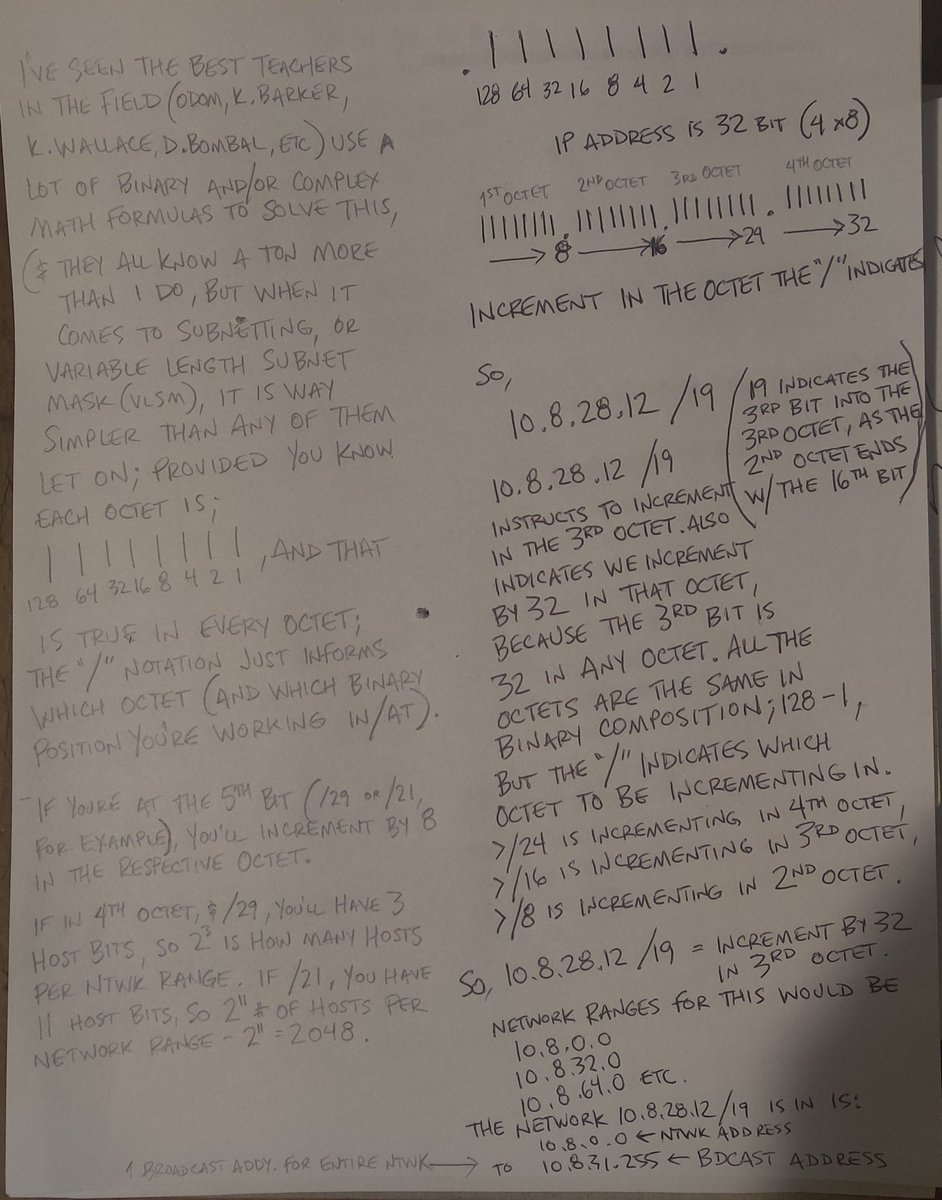 I'VE SEEN THE BEST TEACHERS
IN THE FIELD (ODOM, K. BARKER,
K. WALLACE, D. BOMBAL, ETC) USE A
LOT OF BINARY AND/OR COMPLEX
MATH FORMULAS TO SOLVE THIS,
(& THEY ALL KNOW A TON MORE
THAN I DO, BUT WHEN IT
COMES TO SUBNETTING, OR
VARIABLE LENGTH SUBNET
MASK (VLSM), IT IS WAY
SIMPLER THAN ANY OF THEM
LET ON; PROVIDED YOU KNOW
EACH OCTET IS;
| | | | | | | | , AND THAT
128 64 32 16 8 4 2 1
IS TRUE IN EVERY OCTET;
THE "/" NOTATION JUST INFORMS
WHICH OCTET (AND WHICH BINARY
POSITION YOU'RE WORKING IN/AT).
- IF YOU'RE AT THE 5TH BIT (/29 OR /21,
FOR EXAMPLE), YOU'LL INCREMENT BY 8
IN THE RESPECTIVE OCTET.
IF IN 4TH OCTET, & /29, YOU'LL HAVE 3
HOST BITS, SO 2³ IS HOW MANY HOSTS
PER NTWK RANGE. IF /21, YOU HAVE
11 HOST BITS, SO 2¹¹ # OF HOSTS PER
NETWORK RANGE - 2¹¹ = 2048.
. | | | | | | | | .
128 64 32 16 8 4 2 1
IP ADDRESS IS 32 BIT (4x8)
1ST OCTET 2ND OCTET 3RD OCTET 4TH OCTET
||||||||.||||||||.||||||||.||||||||
→ 8 → 16 → 24 → 32
INCREMENT IN THE OCTET THE "/" INDICATES
SO,
10.8.28.12 /19
(19 INDICATES THE
3RD BIT INTO THE
3RD OCTET, AS THE
2ND OCTET ENDS
W/ THE 16TH BIT)
10.8.28.12 /19
INSTRUCTS TO INCREMENT
IN THE 3RD OCTET. ALSO
INDICATES WE INCREMENT
BY 32 IN THAT OCTET,
BECAUSE THE 3RD BIT IS
32 IN ANY OCTET. ALL THE
OCTETS ARE THE SAME IN
BINARY COMPOSITION; 128-1,
BUT THE "/" INDICATES WHICH
OCTET TO BE INCREMENTING IN.
>/24 IS INCREMENTING IN 4TH OCTET,
>/16 IS INCREMENTING IN 3RD OCTET,
>/8 IS INCREMENTING IN 2ND OCTET.
SO, 10.8.28.12 /19 = INCREMENT BY 32
IN 3RD OCTET.
NETWORK RANGES FOR THIS WOULD BE
10.8.0.0
10.8.32.0
10.8.64.0 ETC.
THE NETWORK 10.8.28.12 /19 IS IN IS:
10.8.0.0 ← NTWK ADDRESS
1 BROADCAST ADDY. FOR ENTIRE NTWK → TO 10.8.31.255 ← BDCAST ADDRESS